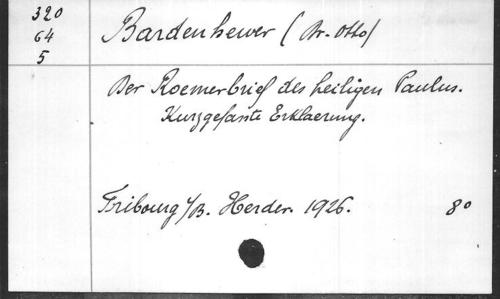 320
64
5
Bardenhewer (Dr. Otto)
Der Roemerbrief des heiligen Paulus.
Kurzgefasste Erklaerung.
Fribourg /B. Herder. 1926. 8°